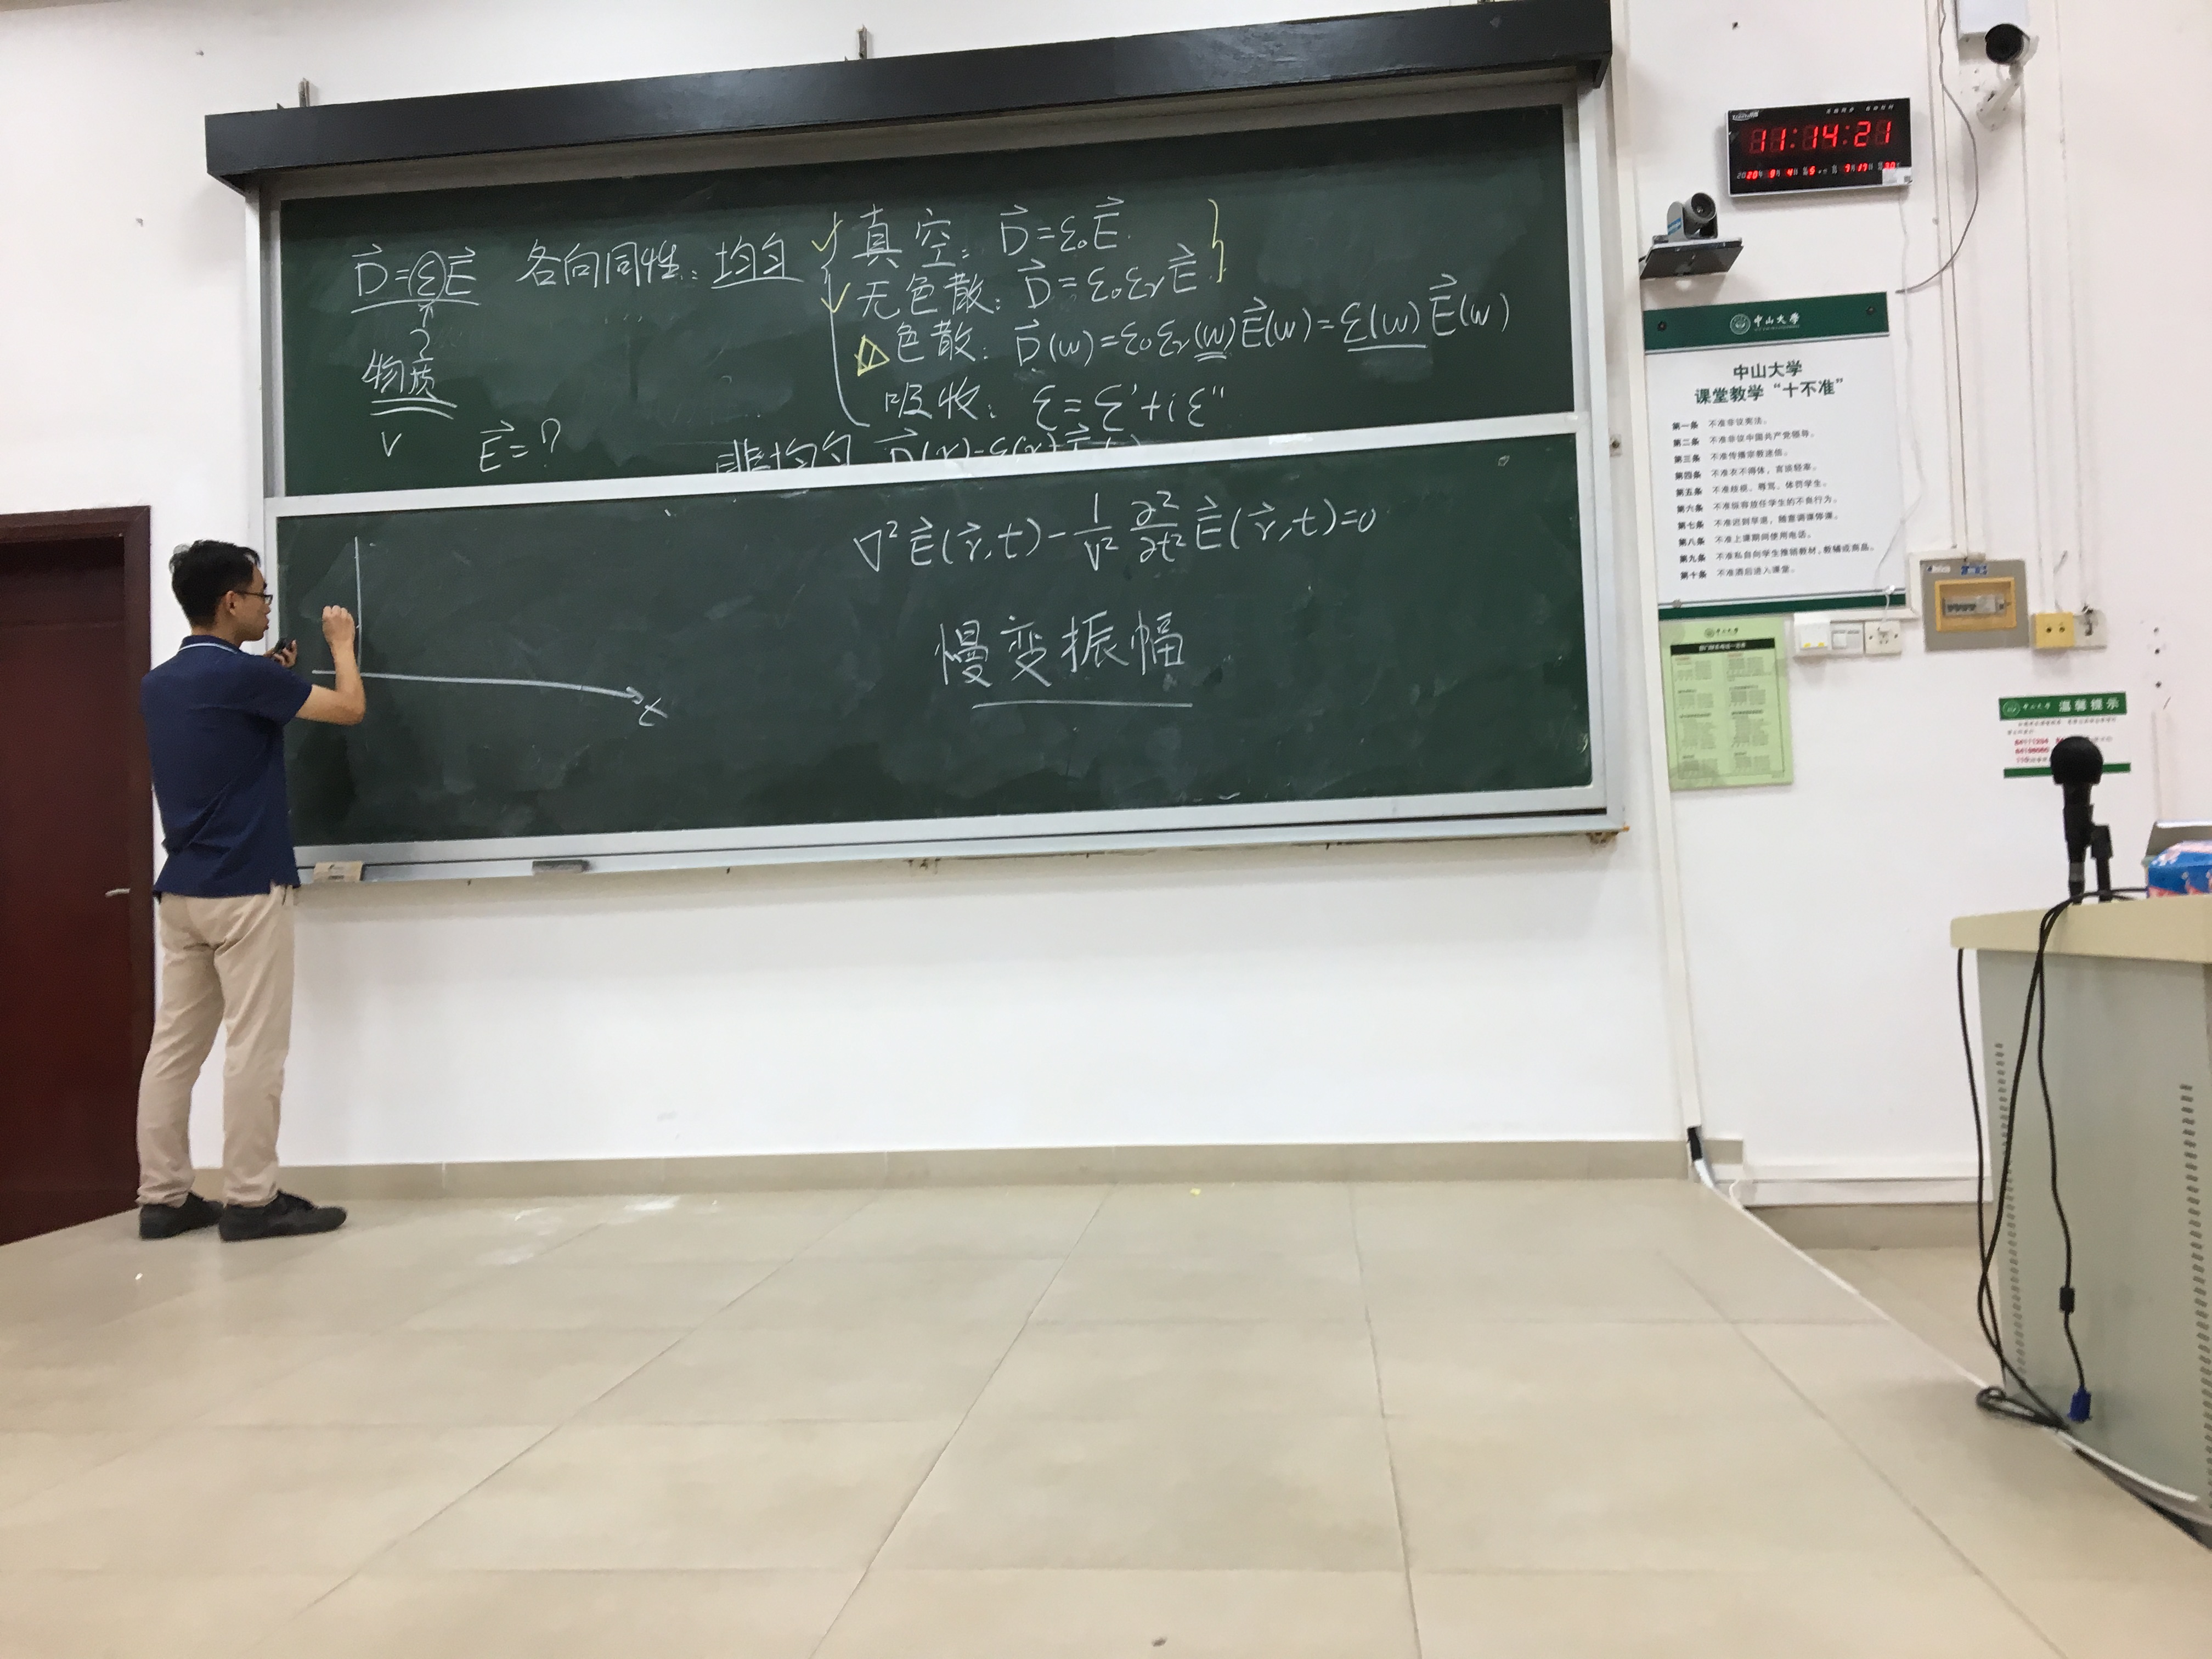 D⃗=εE⃗ 各向同性: 均匀
真空: D⃗=ε₀E⃗
无色散: D⃗=ε₀εᵣE⃗
色散: D⃗(w)=ε₀εᵣ(w)E⃗(w)=ε(w)E⃗(w)
吸收: ε=ε'+iε"
?
物质
V
E⃗=?
非均匀
∇²E⃗(r⃗,t)-1/V² ∂²/∂t² E⃗(r⃗,t)=0
慢变振幅
t
11:14:21
中山大学
中山大学
课堂教学“十不准”
第一条 不准非议宪法。
第二条 不准非议中国共产党领导。
第三条 不准传播宗教迷信。
第四条 不准衣不得体,言谈轻率。
第五条 不准歧视、辱骂、体罚学生。
第六条 不准纵容放任学生的不良行为。
第七条 不准迟到早退,随意调课停课。
第八条 不准上课期间使用电话。
第九条 不准私自向学生推销教材、教辅或商品。
第十条 不准酒后进入课堂。
中山大学
中山大学 温馨提示